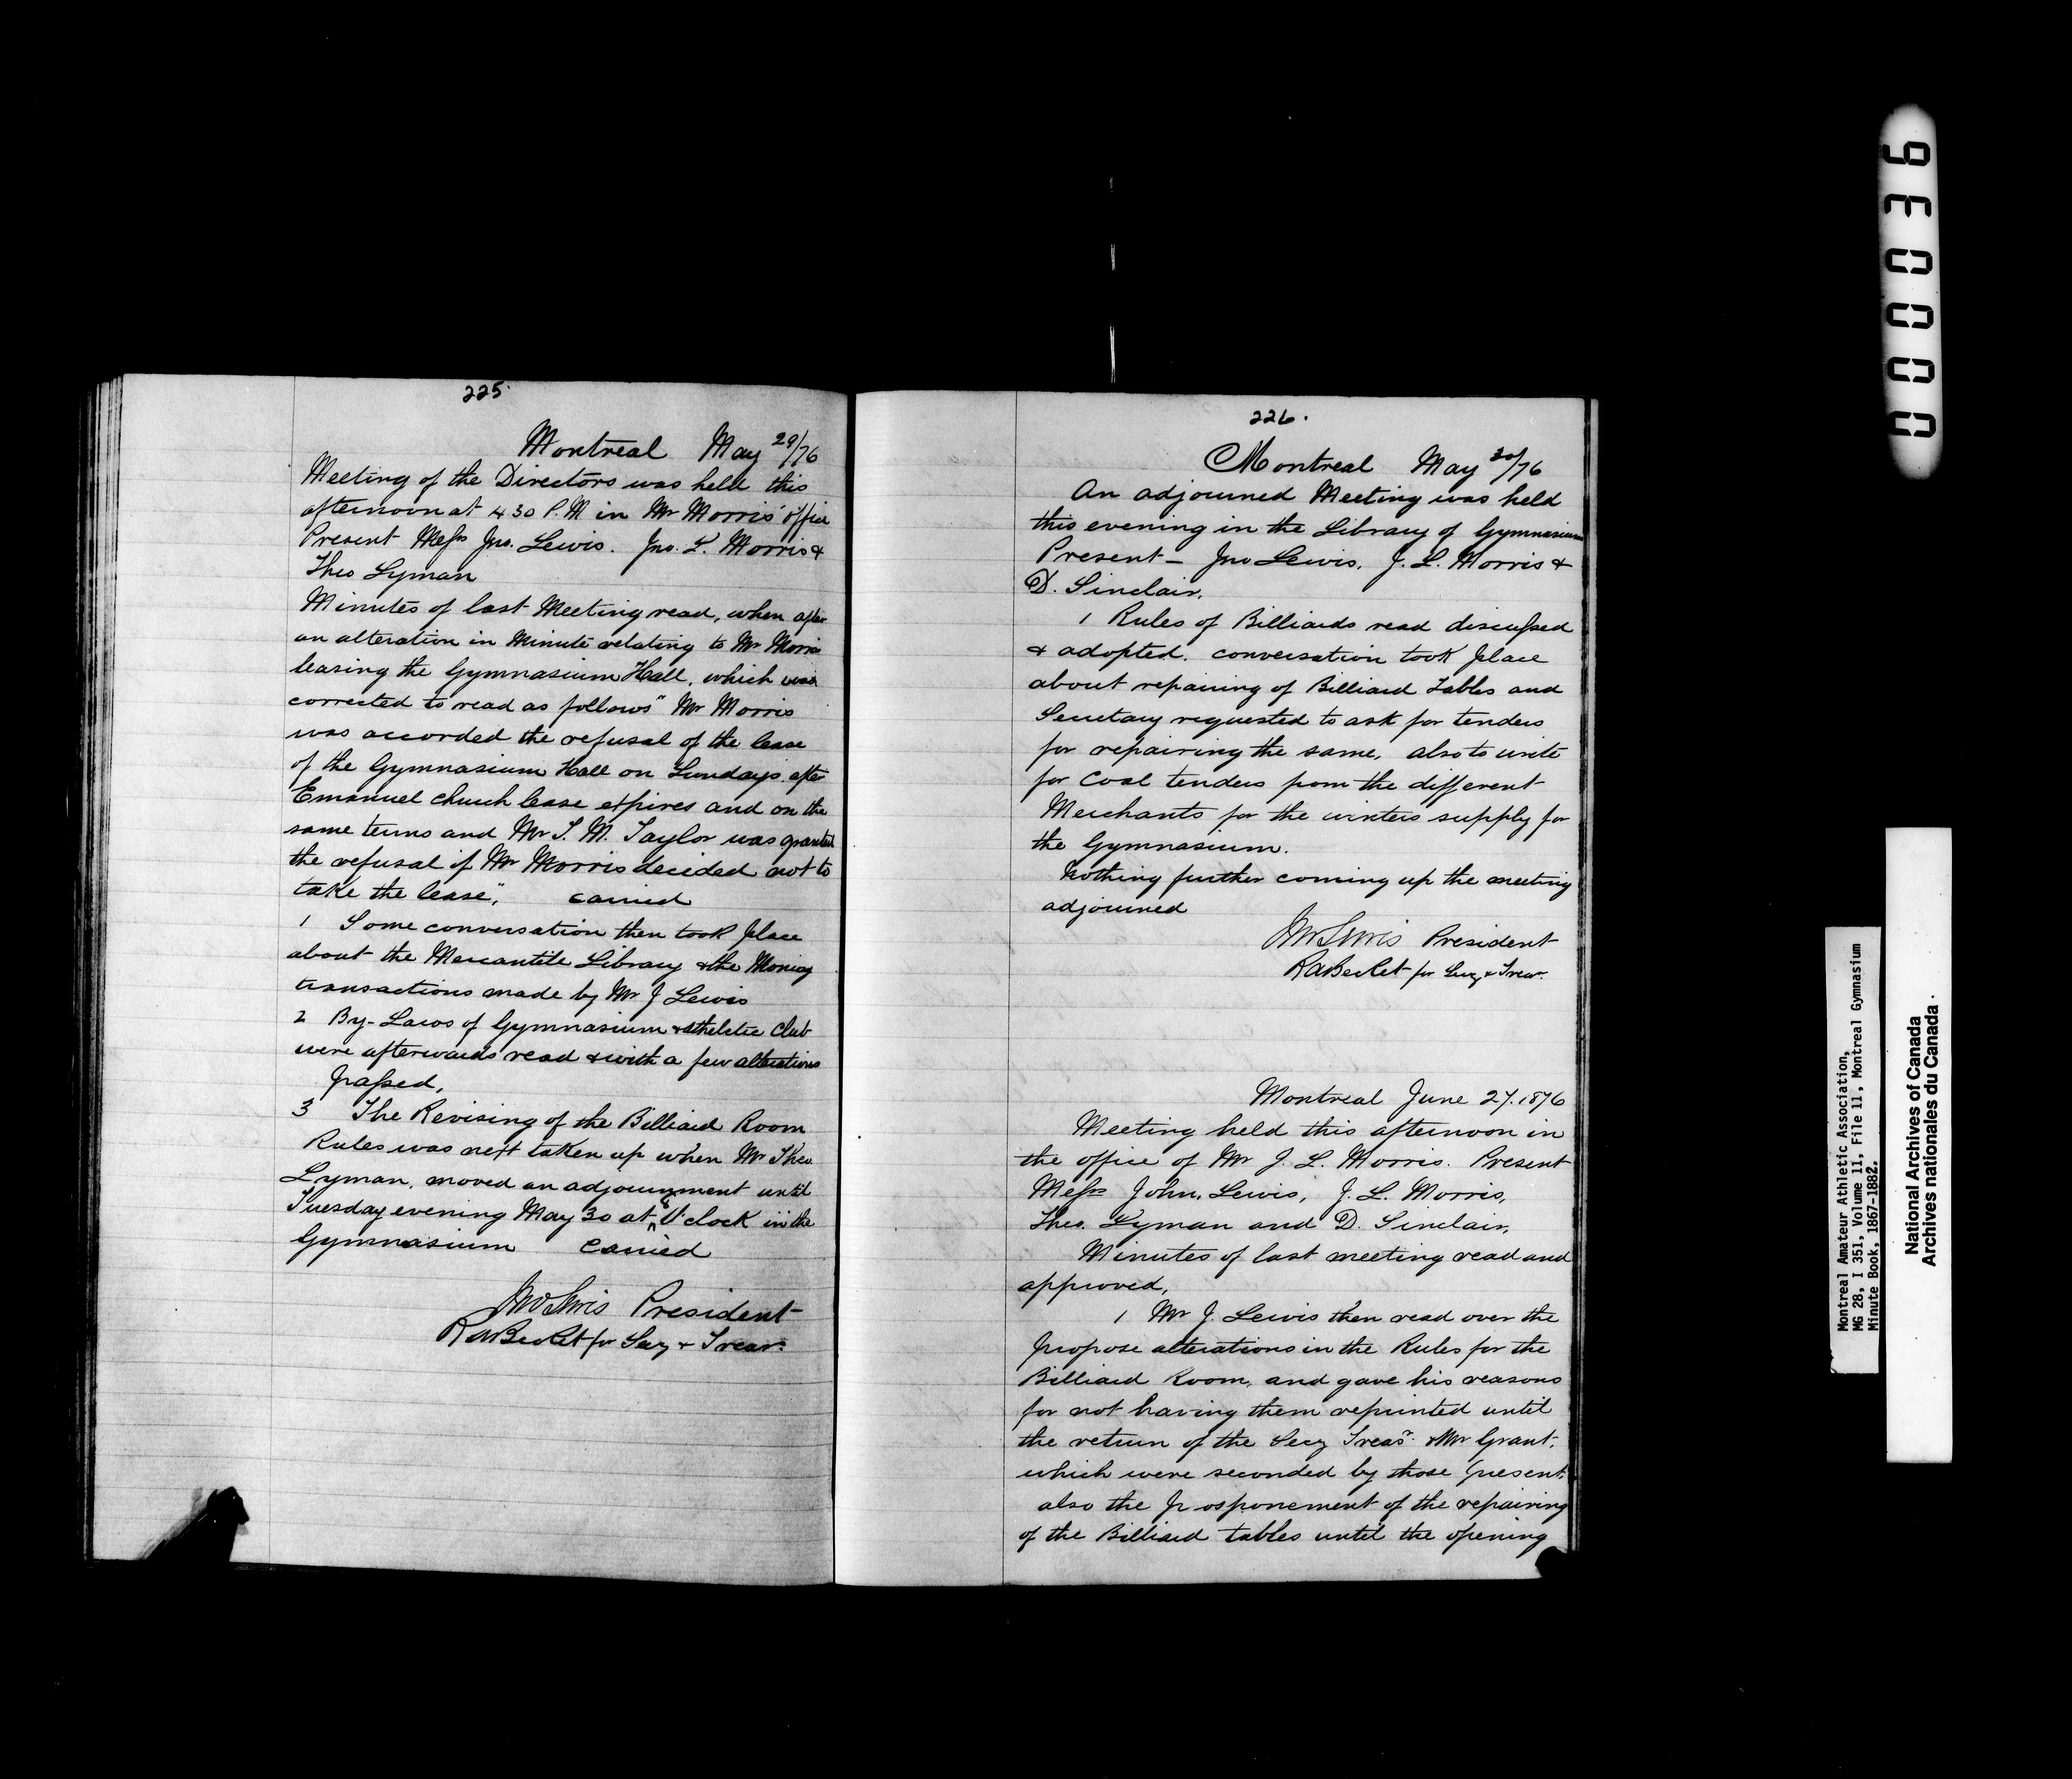 225.
Montreal May 29/76
Meeting of the Directors was held this
afternoon at 4 30 P.M in Mr Morris' office
Present Messrs Jno. Lewis. Jno. L. Morris &
Theo Lyman
Minutes of last Meeting read, when after
an alteration in Minute relating to Mr Morris
leasing the Gymnasium Hall, which was
corrected to read as follows "Mr Morris
was accorded the refusal of the lease
of the Gymnasium Hall on Sundays, after
Emanuel church lease expires and on the
same terms and Mr T. M. Taylor was granted
the refusal if Mr Morris decided not to
take the lease", carried
1 Some conversation then took place
about the Mercantile Library & the Money
transactions made by Mr J Lewis
2 By-Laws of Gymnasium & atheletic Club
were afterwards read & with a few alterations
passed,
3 The Revising of the Billiard Room
Rules was next taken up when Mr Theo
Lyman, moved an adjournment until
Tuesday evening May 30 at 8 O'clock in the
Gymnasium Carried
Jno Lewis President
R A Becket for Secy & Treasr.
226.
Montreal May 30/76
An adjourned Meeting was held
this evening in the Library of Gymnasium
Present - Jno Lewis, J. L. Morris &
D. Sinclair.
1 Rules of Billiards read discussed
& adopted. conversation took place
about repairing of Billiard Tables and
Secretary requested to ask for tenders
for repairing the same, also to write
for Coal tenders from the different
Merchants for the winters supply for
the Gymnasium.
Nothing further coming up the meeting
adjourned
Jno Lewis President
R A Becket for Secy & Treasr.
Montreal June 27. 1876
Meeting held this afternoon in
the office of Mr J. L. Morris. Present
Messrs John, Lewis, J. L. Morris,
Theo. Lyman and D. Sinclair,
Minutes of last meeting read and
approved,
1 Mr J. Lewis then read over the
propose alterations in the Rules for the
Billiard Room, and gave his reasons
for not having them reprinted until
the return of the Secy Treasr & Mr Grant,
which were seconded by those present,
also the posponement of the repairing
of the Billiard tables until the opening
000036
Montreal Amateur Athletic Association,
MG 28, I 351, Volume 11, File 11, Montreal Gymnasium
Minute Book, 1867-1882.
National Archives of Canada
Archives nationales du Canada